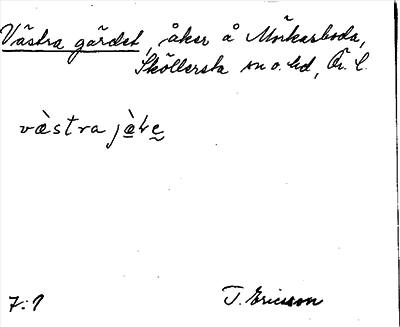 Västra gärdet, åker å Mörkarboda,
Sköllersta sn o. hd, Ör. l.
västra jàve
7:1
T. Ericsson